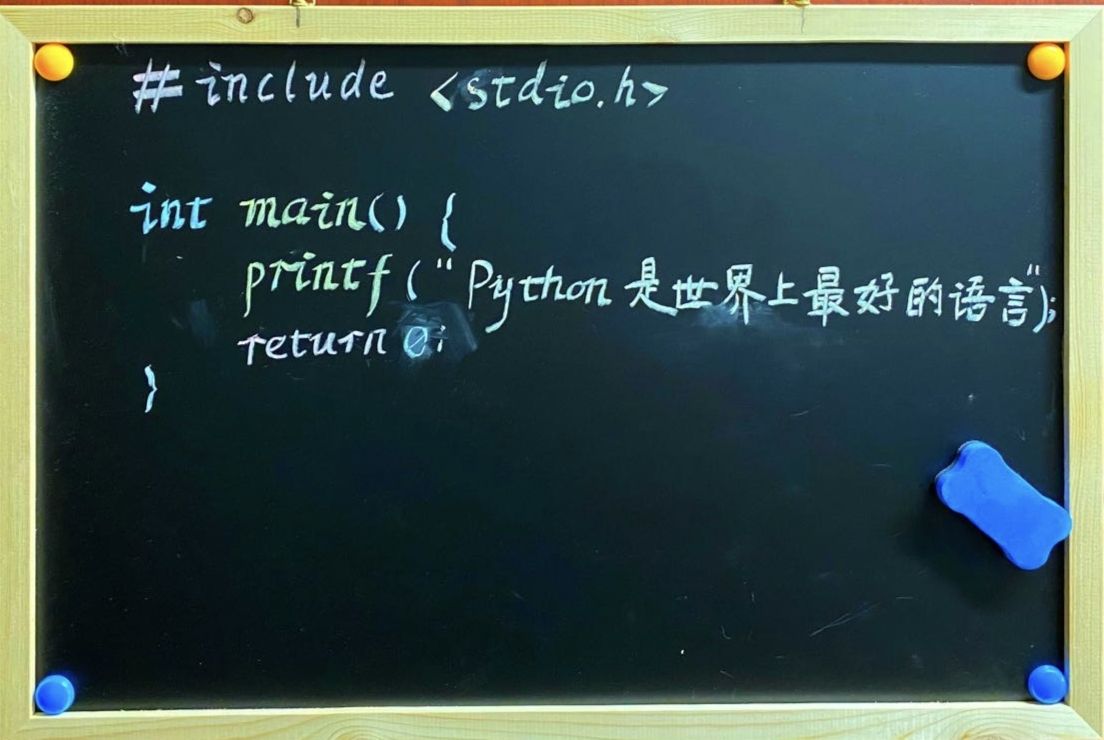 #include <stdio.h>
int main() {
printf("Python是世界上最好的语言");
return 0;
}